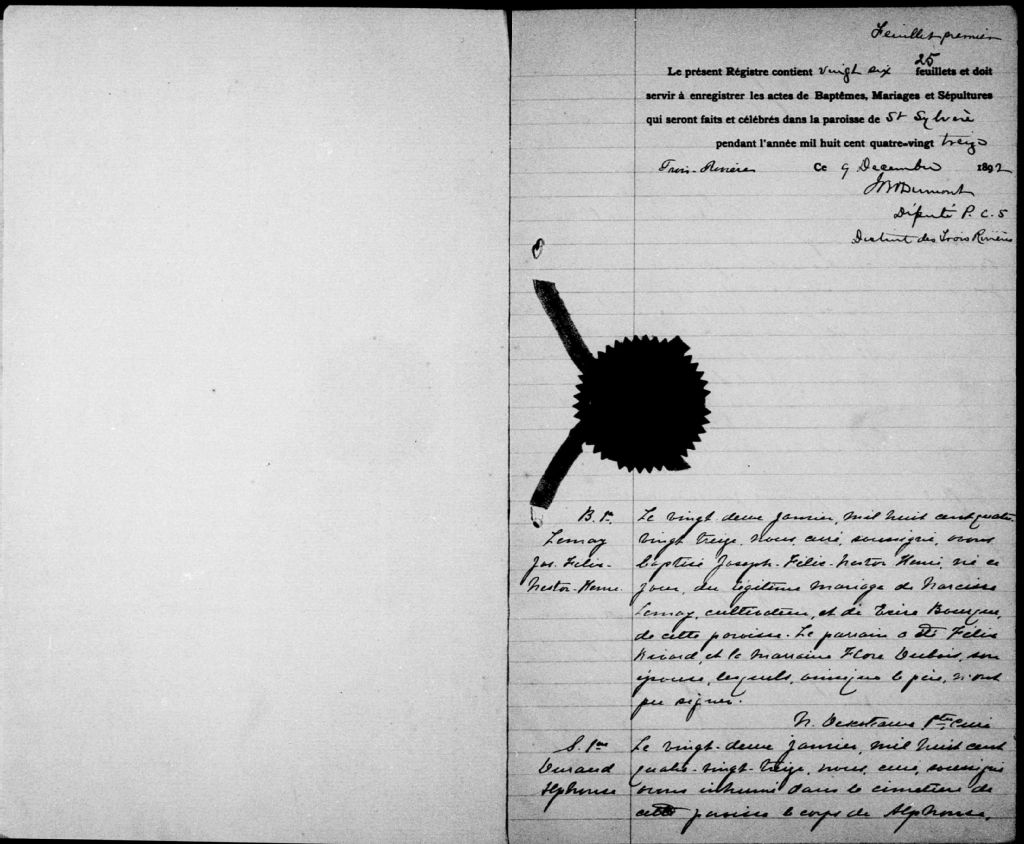 Feuillet premier
25
Le présent Régistre contient vingt six feuillets et doit
servir à enregistrer les actes de Baptêmes, Mariages et Sépultures
qui seront faits et célébrés dans la paroisse de St Sylvère
pendant l'année mil huit cent quatre=vingt treize
Trois-Rivières Ce 9 Decembre 1892
Député P. C. S
District des Trois Rivières
B. 1er
Lemay
Jos. Félix-
Nestor-Henri.
Le vingt-deux janvier, mil huit cent quatre-
vingt treize, nous, curé, soussigné, avons
baptisé Joseph-Félix-Nestor Henri, né ce
jour, du légitime mariage de Narcisse
Lemay, cultivateur, et de Bourque,
de cette paroisse. Le parrain a été Félix
Rivard, et la marraine Flore Dubois, son
épouse, lesquels, ainsi que le père, n'ont
pu signer.
N. Ptre, Curé
S. 1ère
Durand
Alphonse
Le vingt-deux janvier, mil huit cent
quatre-vingt-treize, nous, curé, soussigné
avons inhumé dans le cimetière de
cette paroisse le corps de Alphonse,